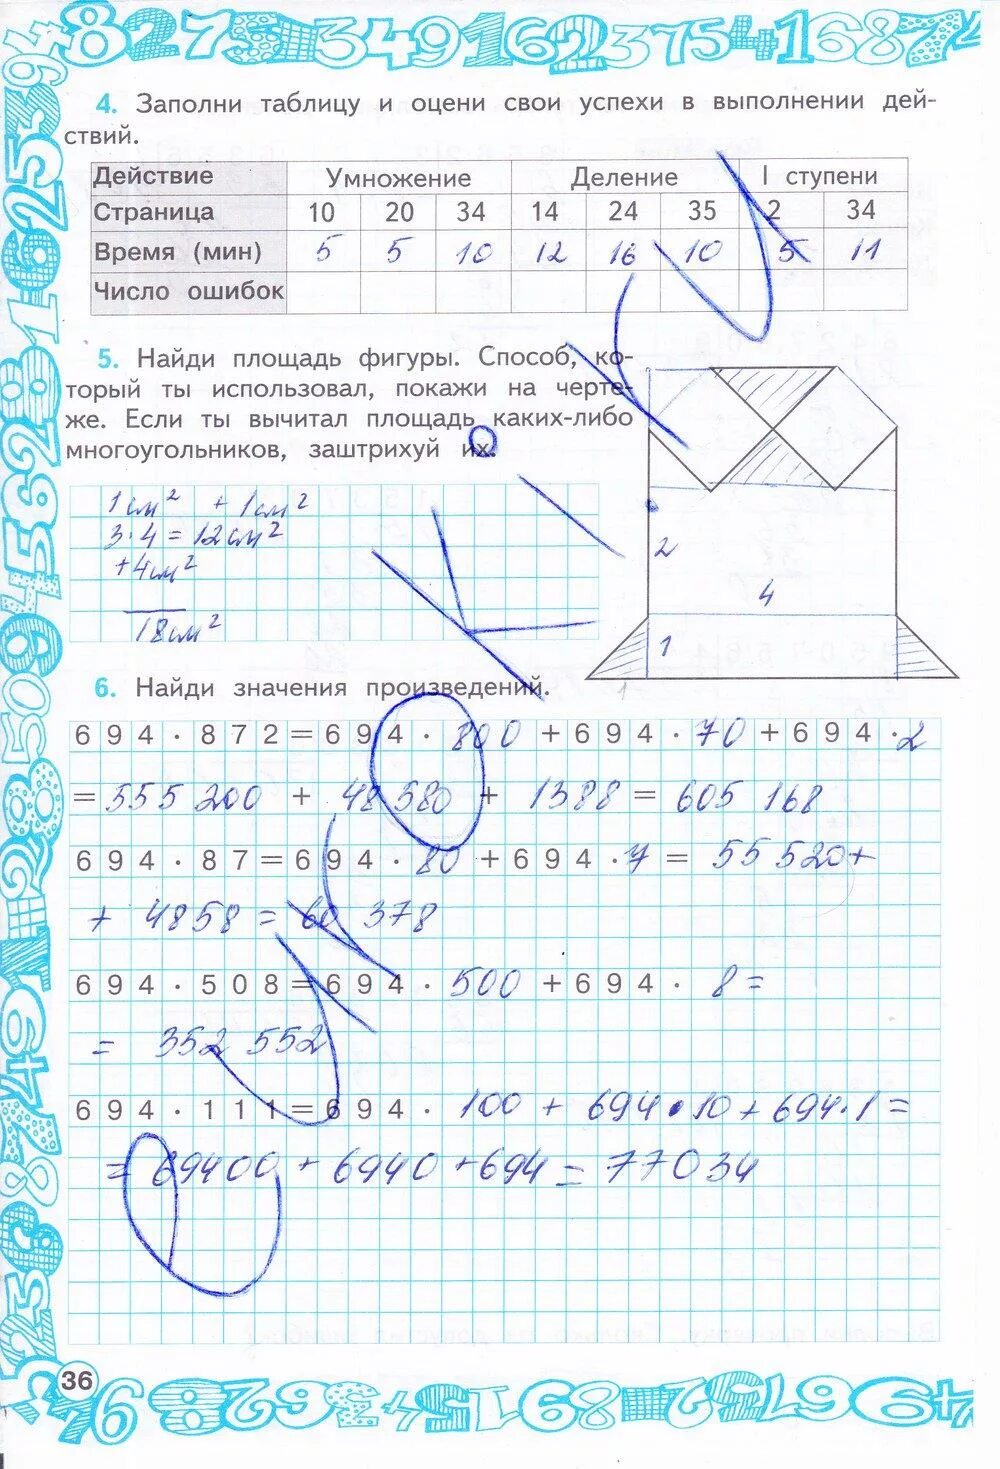 4. Заполни таблицу и оцени свои успехи в выполнении дей-
ствий.
Действие Умножение Деление I ступени
Страница 10 20 34 14 24 35 2 34
Время (мин) 5 5 10 12 16 10 5 11
Число ошибок
5. Найди площадь фигуры. Способ, ко-
торый ты использовал, покажи на черте-
же. Если ты вычитал площадь каких-либо
многоугольников, заштрихуй их.
1 см² + 1 см²
3·4 = 12 см²
+4 см²
18 см²
2
4
1
1
6. Найди значения произведений.
694 · 872 = 694 · 800 + 694 · 70 + 694 · 2
= 555 200 + 48 580 + 1388 = 605 168
694 · 87 = 694 · 80 + 694 · 7 = 55 520 +
+ 4858 = 60 378
694 · 508 = 694 · 500 + 694 · 8 =
= 352 552
694 · 111 = 694 · 100 + 694 · 10 + 694 · 1 =
= 69400 + 6940 + 694 = 77034
36